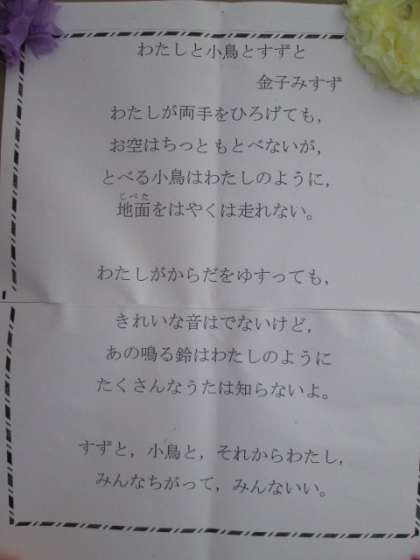 わたしと小鳥とすずと
金子みすず
わたしが両手をひろげても，
お空はちっともとべないが，
とべる小鳥はわたしのように，
地面をはやくは走れない。
じべた
わたしがからだをゆすっても，
きれいな音はでないけど，
あの鳴る鈴はわたしのように
たくさんなうたは知らないよ。
すずと，小鳥と，それからわたし，
みんなちがって，みんないい。